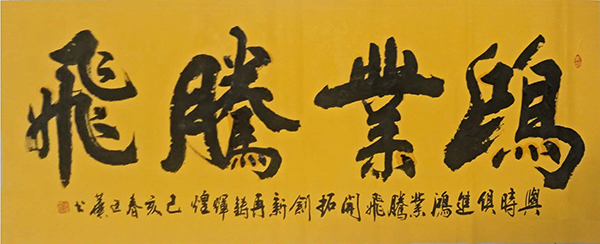 鴻業騰飛
與時俱進鴻業騰飛開拓創新再鑄輝煌己亥春